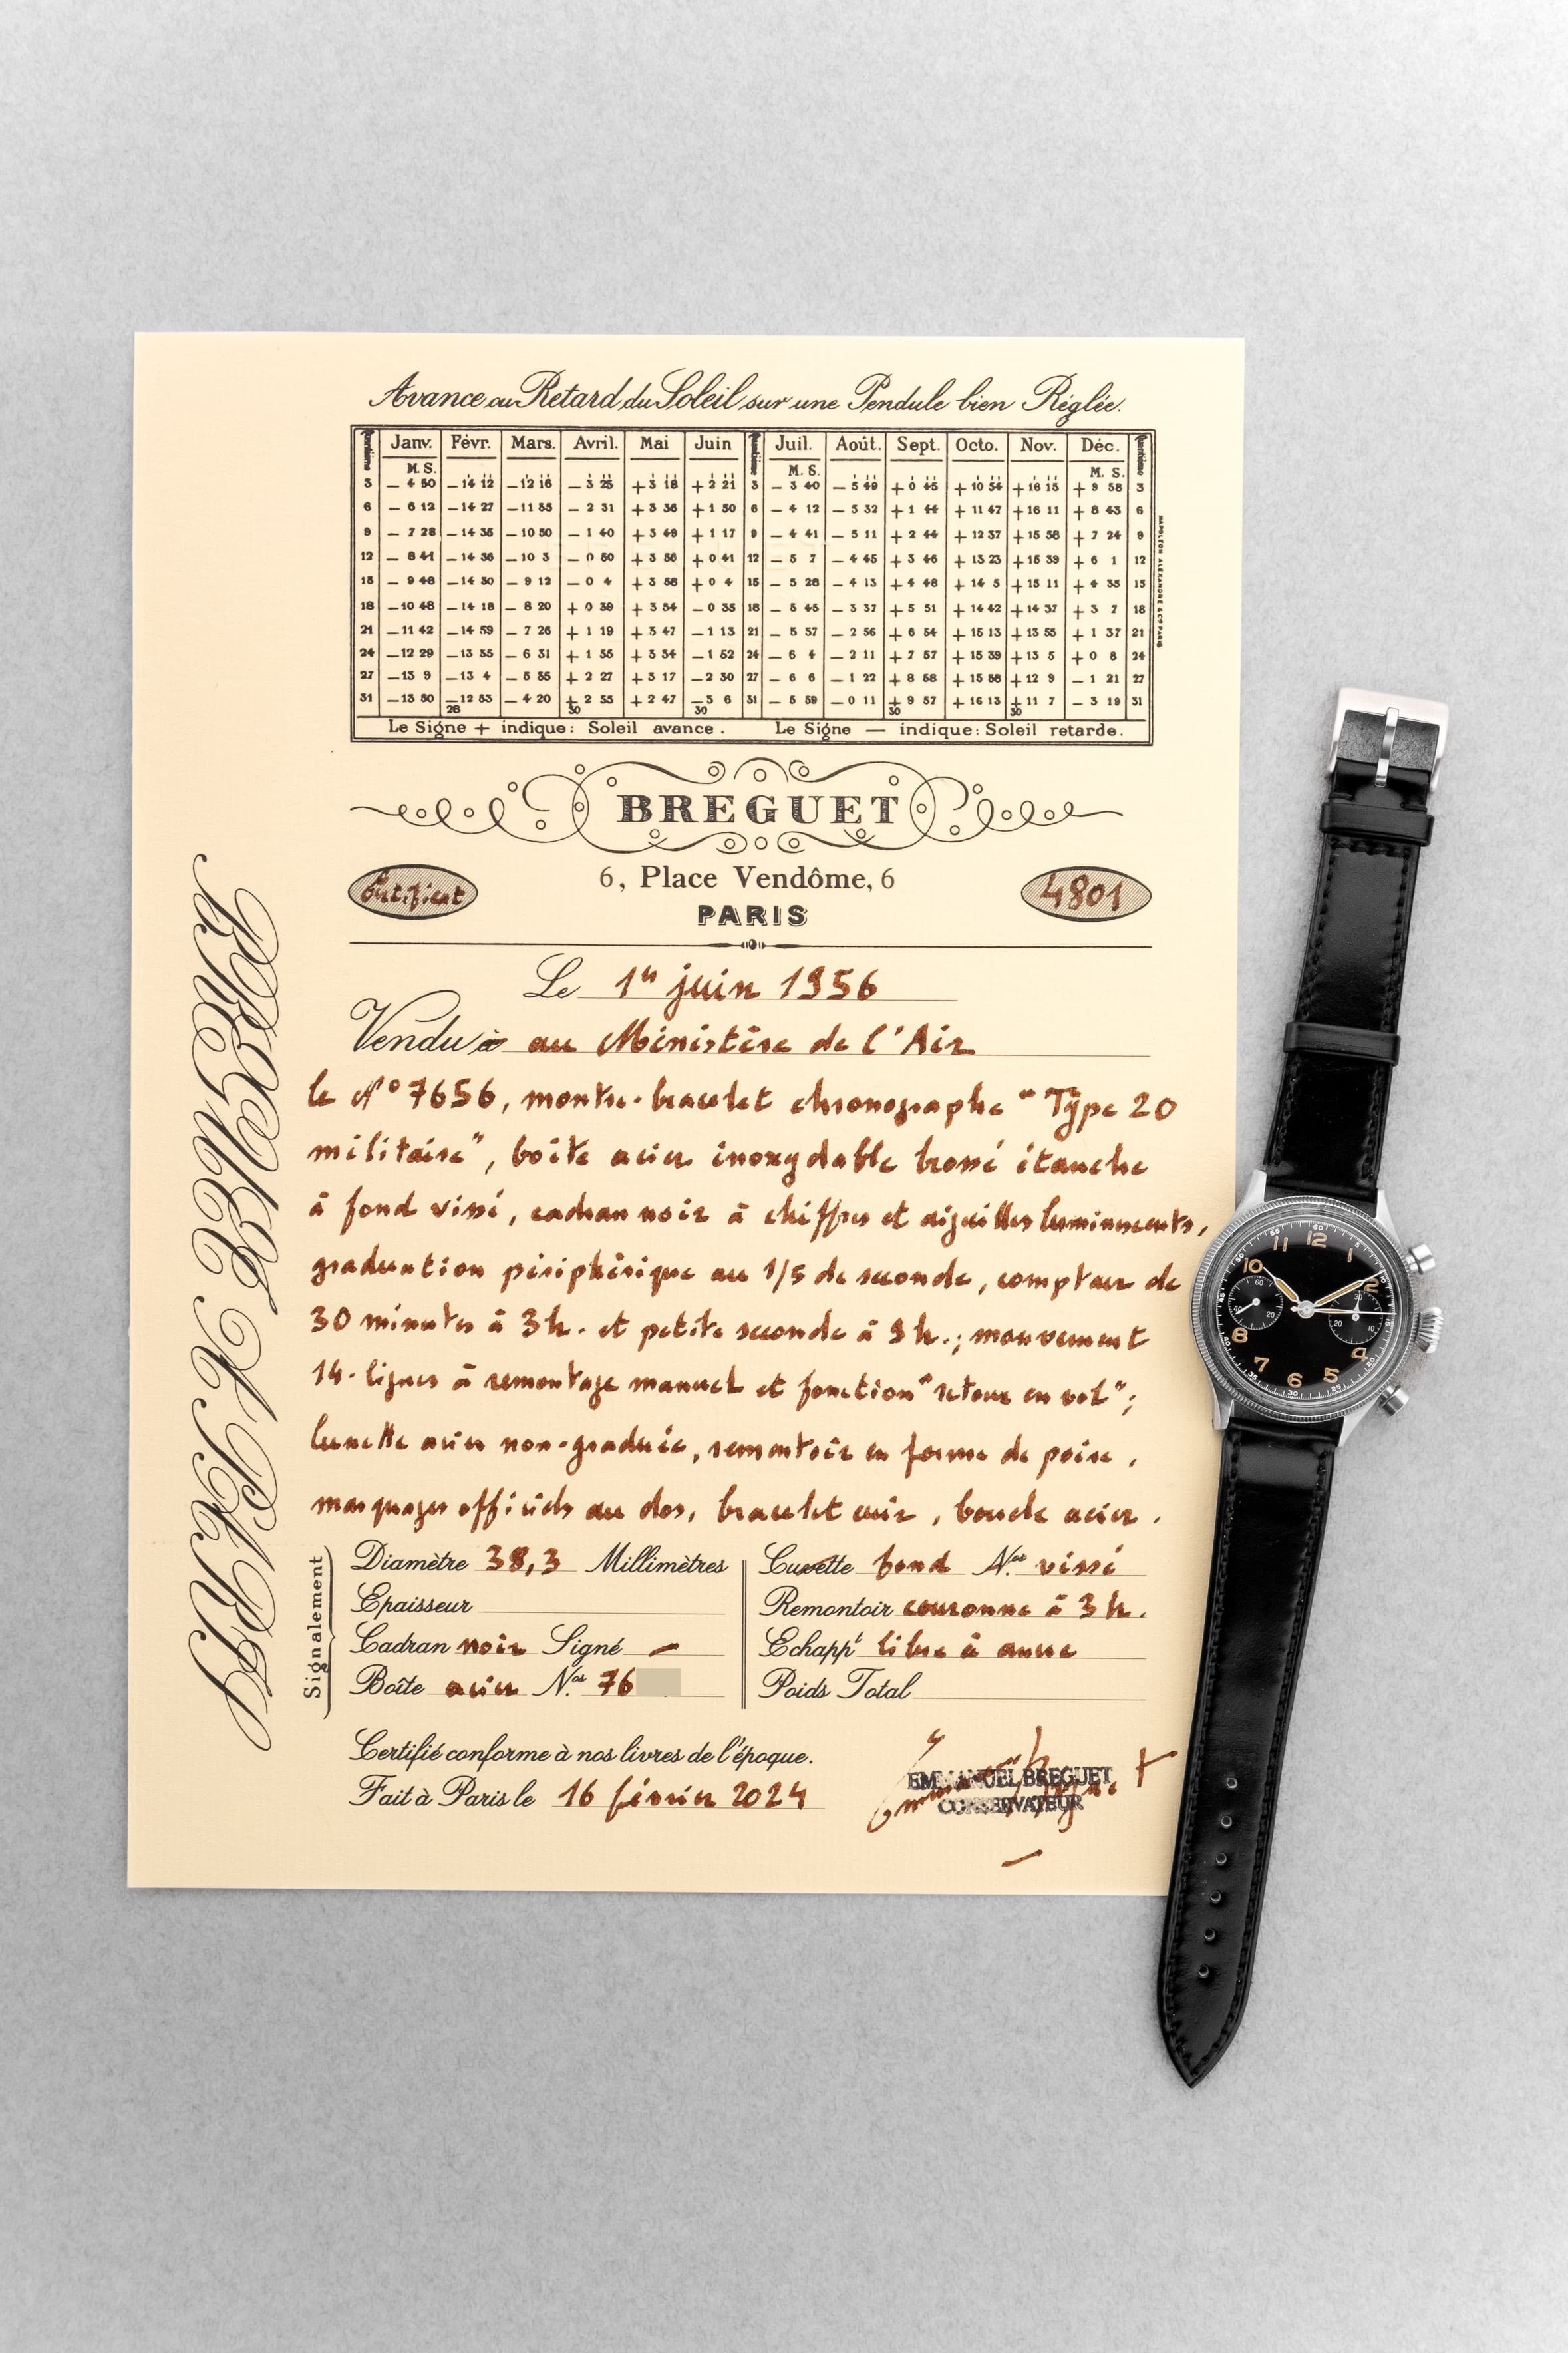 Avance ou Retard du Soleil sur une Pendule bien Réglée.
Quantième Janv. Févr. Mars. Avril. Mai Juin Quantième Juil. Août. Sept. Octo. Nov. Déc. Quantième
M. S. M. S. M. S.
3 — 4 50 —14 12 —12 16 — 3 25 +3 18 +2 21 3 — 3 40 — 5 49 +0 45 +10 54 +16 15 +9 58 3
6 — 6 12 —14 27 —11 35 — 2 31 +3 36 +1 50 6 — 4 12 — 5 32 +1 44 +11 47 +16 11 +8 43 6
9 — 7 28 —14 36 —10 50 — 1 40 +3 49 +1 17 9 — 4 41 — 5 11 +2 44 +12 37 +15 58 +7 24 9
12 — 8 41 —14 36 —10 3 — 0 50 +3 56 +0 41 12 — 5 7 — 4 45 +3 46 +13 23 +15 39 +6 1 12
15 — 9 48 —14 30 — 9 12 — 0 4 +3 58 +0 4 15 — 5 28 — 4 13 +4 48 +14 5 +15 11 +4 35 15
18 —10 48 —14 18 — 8 20 +0 39 +3 54 —0 35 18 — 5 45 — 3 37 +5 51 +14 42 +14 37 +3 7 18
21 —11 42 —14 59 — 7 26 +1 19 +3 47 —1 13 21 — 5 57 — 2 56 +6 54 +15 13 +13 55 +1 37 21
24 —12 29 —13 35 — 6 31 +1 55 +3 34 —1 52 24 — 6 4 — 2 11 +7 57 +15 39 +13 5 +0 8 24
27 —13 9 —13 4 — 5 35 +2 27 +3 17 —2 30 27 — 6 6 — 1 22 +8 58 +15 58 +12 9 — 1 21 27
31 —13 50 —12 53 — 4 20 +2 55 +2 47 —3 6 31 — 5 59 —0 11 +9 57 +16 13 +11 7 — 3 19 31
28 30 30 30 30
Le Signe + indique: Soleil avance. Le Signe — indique: Soleil retarde.
NAPOLÉON ALEXANDRE & Cie PARIS
BREGUET
6, Place Vendôme, 6
PARIS
Certificat
4801
Le 1er juin 1956
Vendu à au Ministère de l'Air
le N° 7656, montre-bracelet chronographe "Type 20
militaire", boîte acier inoxydable brossé étanche
à fond vissé, cadran noir à chiffres et aiguilles luminescents,
graduation périphérique au 1/5 de seconde, compteur de
30 minutes à 3h. et petite seconde à 9h.; mouvement
14-lignes à remontage manuel et fonction "retour en vol";
lunette acier non-graduée, remontoir en forme de poire,
marquages officiels au dos, bracelet cuir, boucle acier.
Signalement
Diamètre 38,3 Millimètres
Epaisseur
Cadran noir Signé —
Boîte acier Nos 76
Cuvette fond Nos vissé
Remontoir couronne à 3h.
Echappt libre à ancre
Poids Total
Certifié conforme à nos livres de l'époque.
Fait à Paris le 16 février 2024
EMMANUEL BREGUET
CONSERVATEUR
60 5 10 15 20 25 30 35 40 45 50 55
12 1 2 4 5 6 7 8 10 11
60 20 40
30 10 20